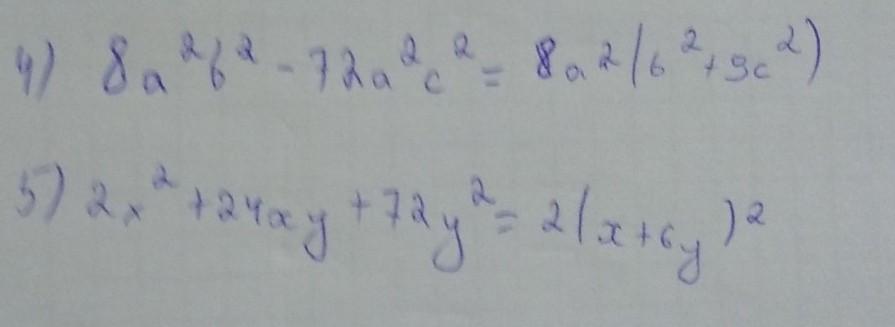 4) 8a²b² - 72a²c² = 8a²(b² + 9c²)
5) 2x² + 24xy + 72y² = 2(x + 6y)²